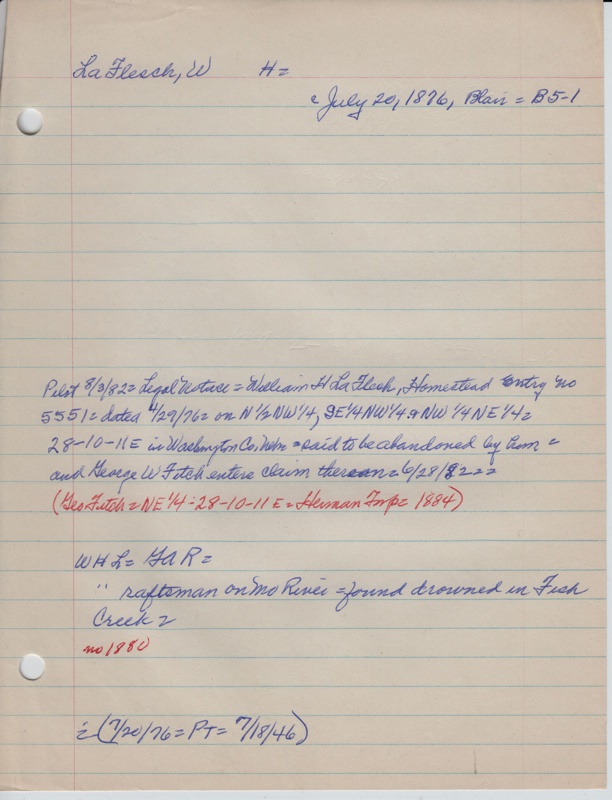 La Flesch, W H =
c July 20, 1876, Blair = B5-1
Pilot 8/3/82 = Legal Notice = William H La Flesh, Homestead Entry no
5551 = dated 4/29/76 = on N 1/2 NW 1/4, SE 1/4 NW 1/4 & NW 1/4 NE 1/4 =
28-10-11 E in Washington Co, = said to be abandoned by him =
and George W Fitch enters claim thereon = 6/28/82 = =
(Geo Fitch = NE 1/4 = 28-10-11 E = Herman Twp = 1884)
W H L = GAR =
" raftsman on Mo River = found drowned in Fish
Creek =
no 1880
i = (7/20/76 = PT = 7/18/46)